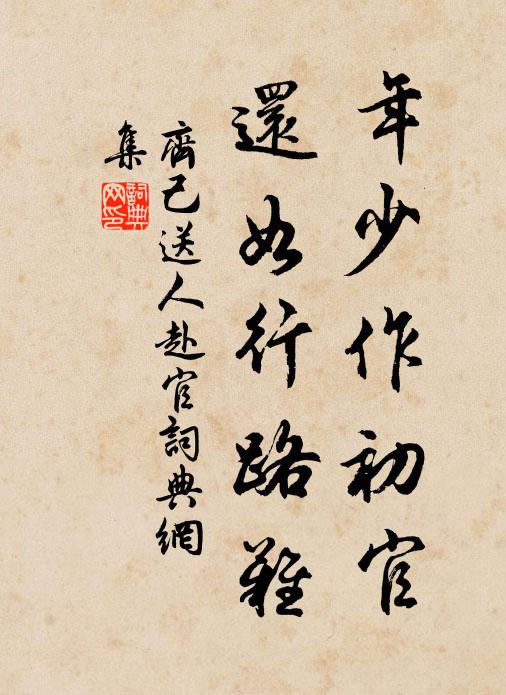 年少作初官
還如行路難
齊己送人赴官詞典網
集
詞典网印